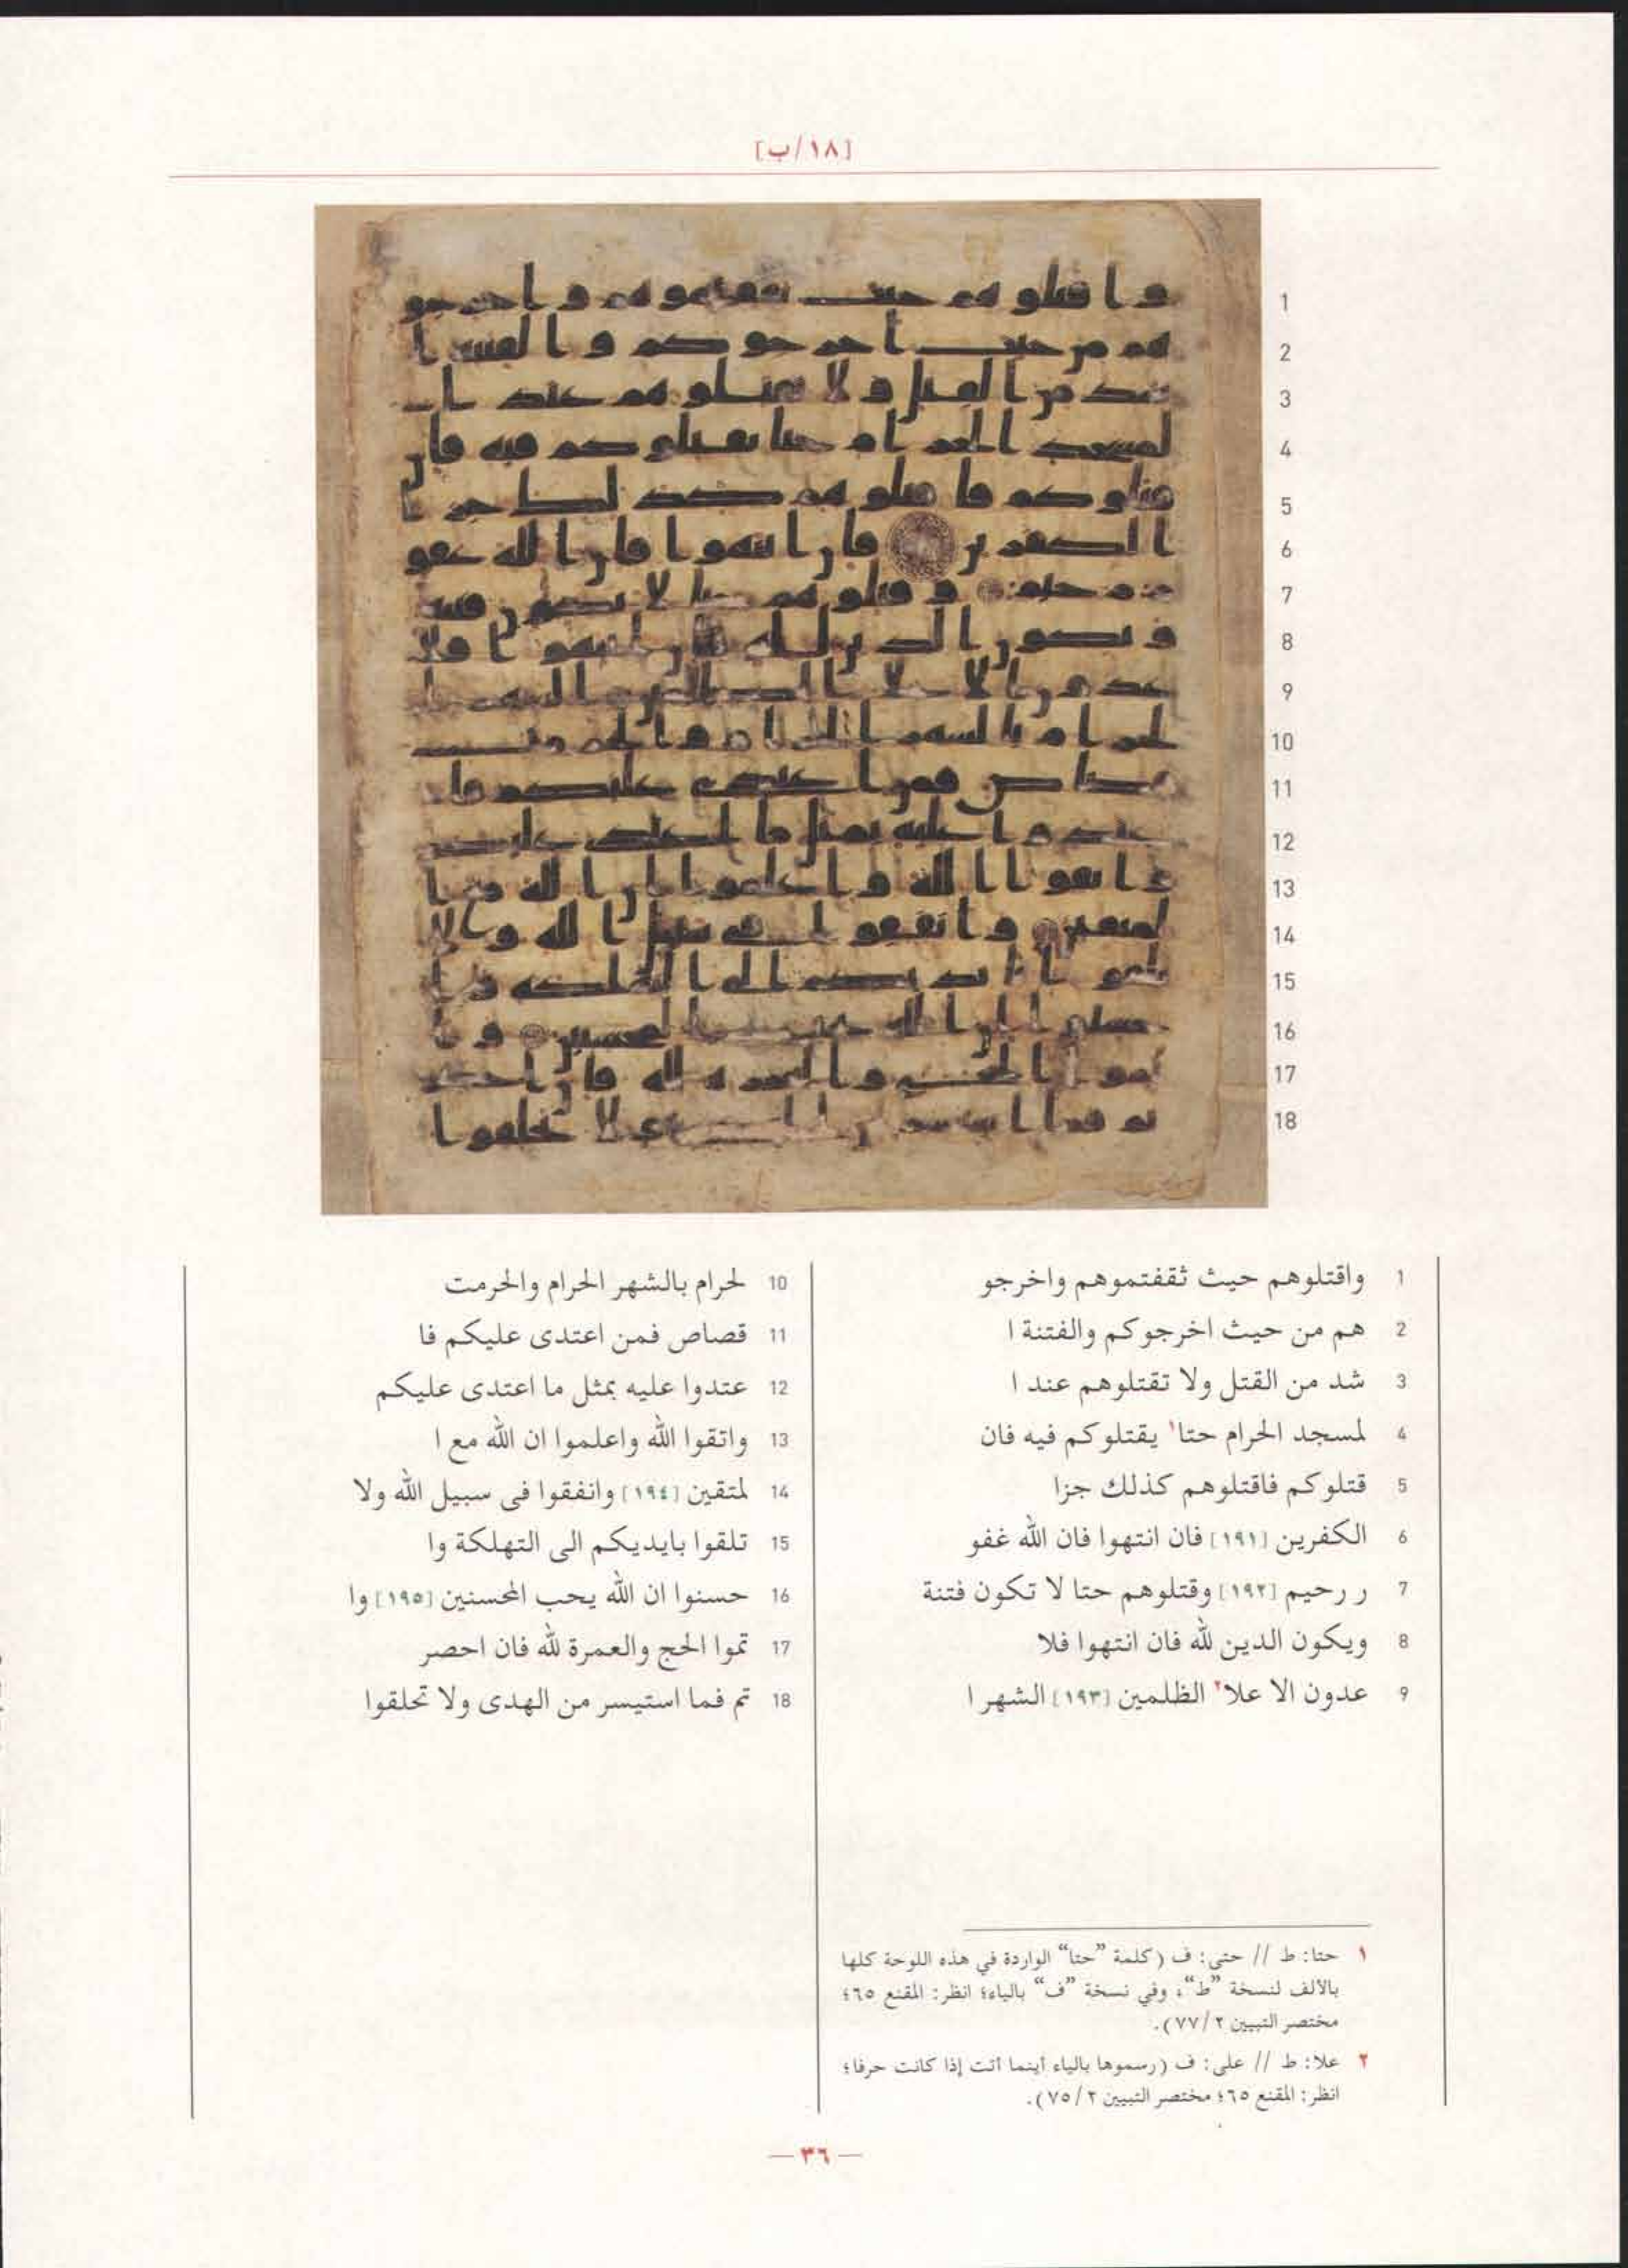 [١٨/ب]
1 واقتلوهم حيث ثقفتموهم واخرجو
2 هم من حيث اخرجوكم والفتنة ا
3 شد من القتل ولا تقتلوهم عند ا
4 لمسجد الحرام حتا١ يقتلوكم فيه فان
5 قتلوكم فاقتلوهم كذلك جزا
6 الكفرين [١٩١] فان انتهوا فان الله غفو
7 ر رحيم [١٩٢] وقتلوهم حتا لا تكون فتنة
8 ويكون الدين لله فان انتهوا فلا
9 عدون الا علا٢ الظلمين [١٩٣] الشهر ا
10 لحرام بالشهر الحرام والحرمت
11 قصاص فمن اعتدى عليكم فا
12 عتدوا عليه بمثل ما اعتدى عليكم
13 واتقوا الله واعلموا ان الله مع ا
14 لمتقين [١٩٤] وانفقوا فى سبيل الله ولا
15 تلقوا بايديكم الى التهلكة وا
16 حسنوا ان الله يحب المحسنين [١٩٥] وا
17 تموا الحج والعمرة لله فان احصر
18 تم فما استيسر من الهدى ولا تحلقوا
١ حتا: ط // حتى: ف (كلمة "حتا" الواردة في هذه اللوحة كلها
بالألف لنسخة "ط"، وفي نسخة "ف" بالياء؛ انظر: المقنع ٦٥؛
مختصر التبيين ٢/٧٧).
٢ علا: ط // على: ف (رسموها بالياء أينما أتت إذا كانت حرفا؛
انظر: المقنع ٦٥؛ مختصر التبيين ٢/٧٥).
— ٣٦ —